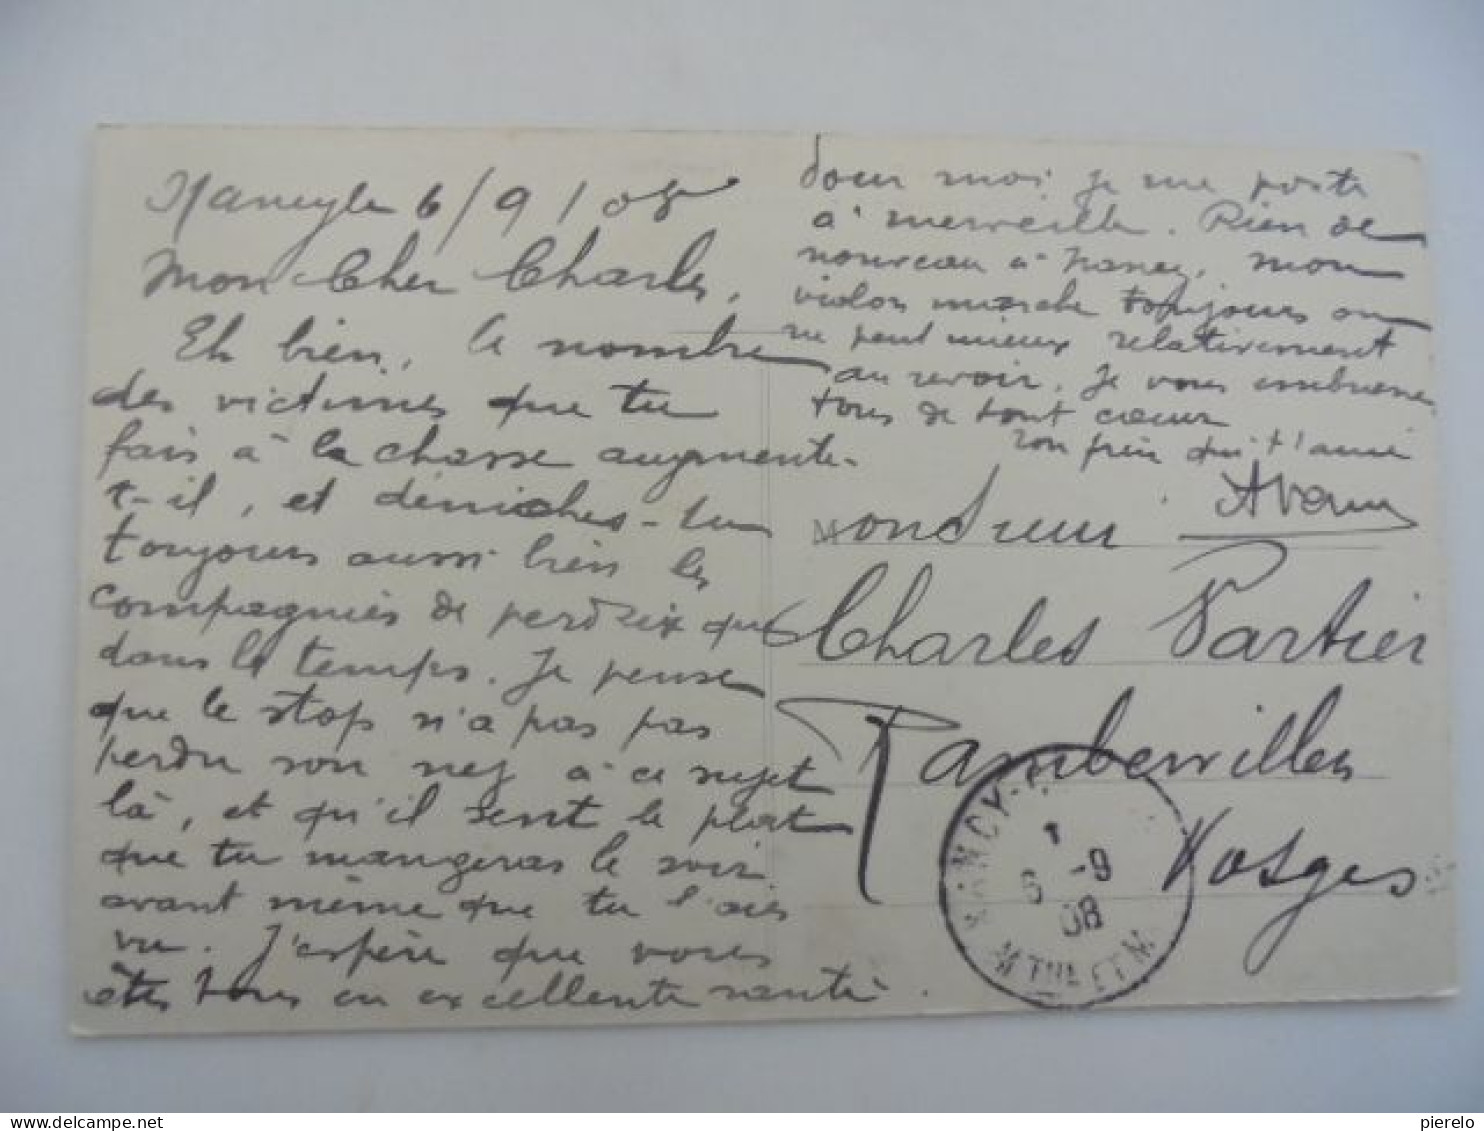 Nancy le 6/9/08
Mon Cher Charles,
Eh bien, le nombre
des victimes que tu
fais à la chasse augmente-
t-il, et déniches-tu
toujours aussi bien les
compagnies de perdrix que
dans le temps. Je pense
que le stop n'a pas pas
perdu son nez à ce sujet
là, et qu'il sent le plat
que tu mangeras le soir
avant même que tu l'aies
vu. J'espère que vous
êtes tous en excellente santé.
Pour moi je me porte
à merveille. Rien de
nouveau à Nancy, mon
violon marche toujours on
ne peut mieux relativement
au revoir. Je vous embrasse
tous de tout cœur
ton frère qui t'aime
Monsieur
Charles Partier
Rambervillers
Vosges
NANCY
6 -9
08
MTHE ET M
pierelo